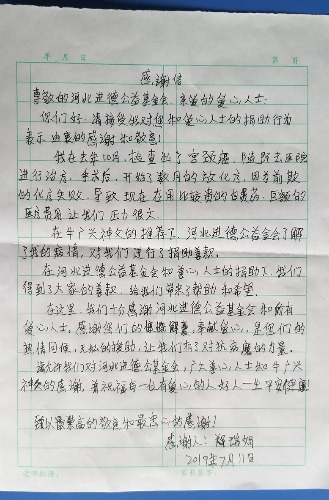 年 月 日 第 页
感谢信
尊敬的河北进德公益基金会、亲爱的爱心人士:
你们好!请接受我对您和爱心人士的捐助行为
表示由衷的感谢和敬意!
我在去年10月,检查出了宫颈癌,随即去医院
进行治疗。手术后,开始了数月的放化疗,因为前期
的化疗失败,导致现在在用比较贵的白蛋药,巨额的
医疗费用让我们压力很大。
在牛广兴神父的推荐下,河北进德公益基金会了解
了我的病情,对我们进行了捐助善款。
在河北进德公益基金会和爱心人士的捐助下,我们
得到了大家的善款,给我们带来了帮助和希望。
在这里,我们十分感谢河北进德公益基金会和所有
爱心人士,感谢他们的慷慨解囊,奉献爱心,是他们的
热情问候,无私的援助,让我们有了对抗病魔的力量。
请允许我们对河北进德基金会,广大爱心人士和牛广兴
神父的感谢,并祝福每一位有爱心的人好人一生平安健康!
致以最崇高的敬意和最衷心的感谢!
感谢人:
2019年7月11日
老师批语: 家长签字: